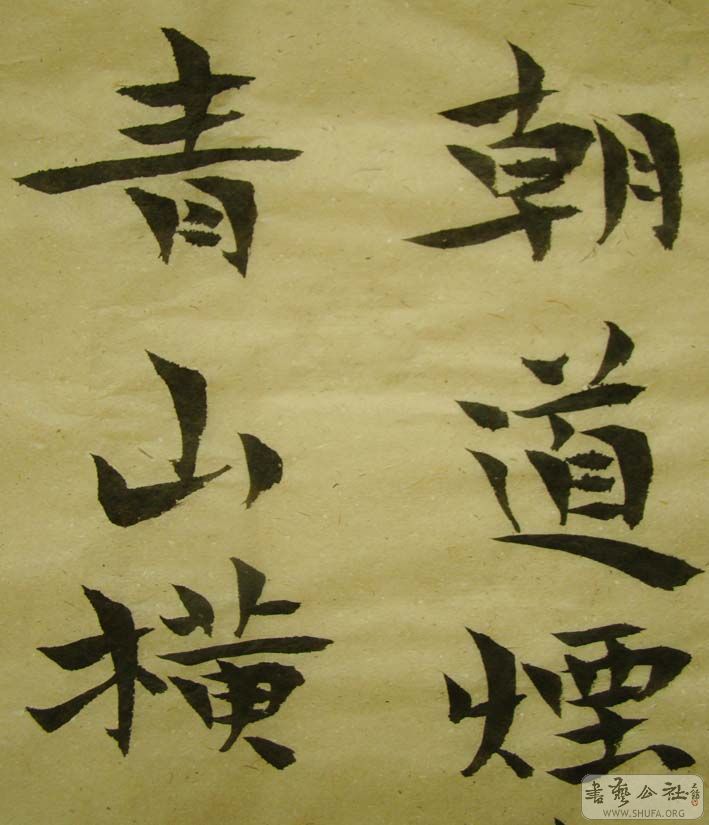 朝道煙
青山横
書藝公社
WWW.SHUFA.ORG